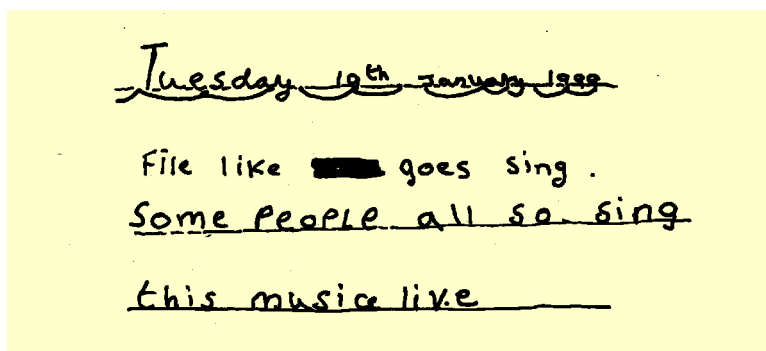 Tuesday 19th January
File like goes sing.
Some PeoPle all so sing
this musice live